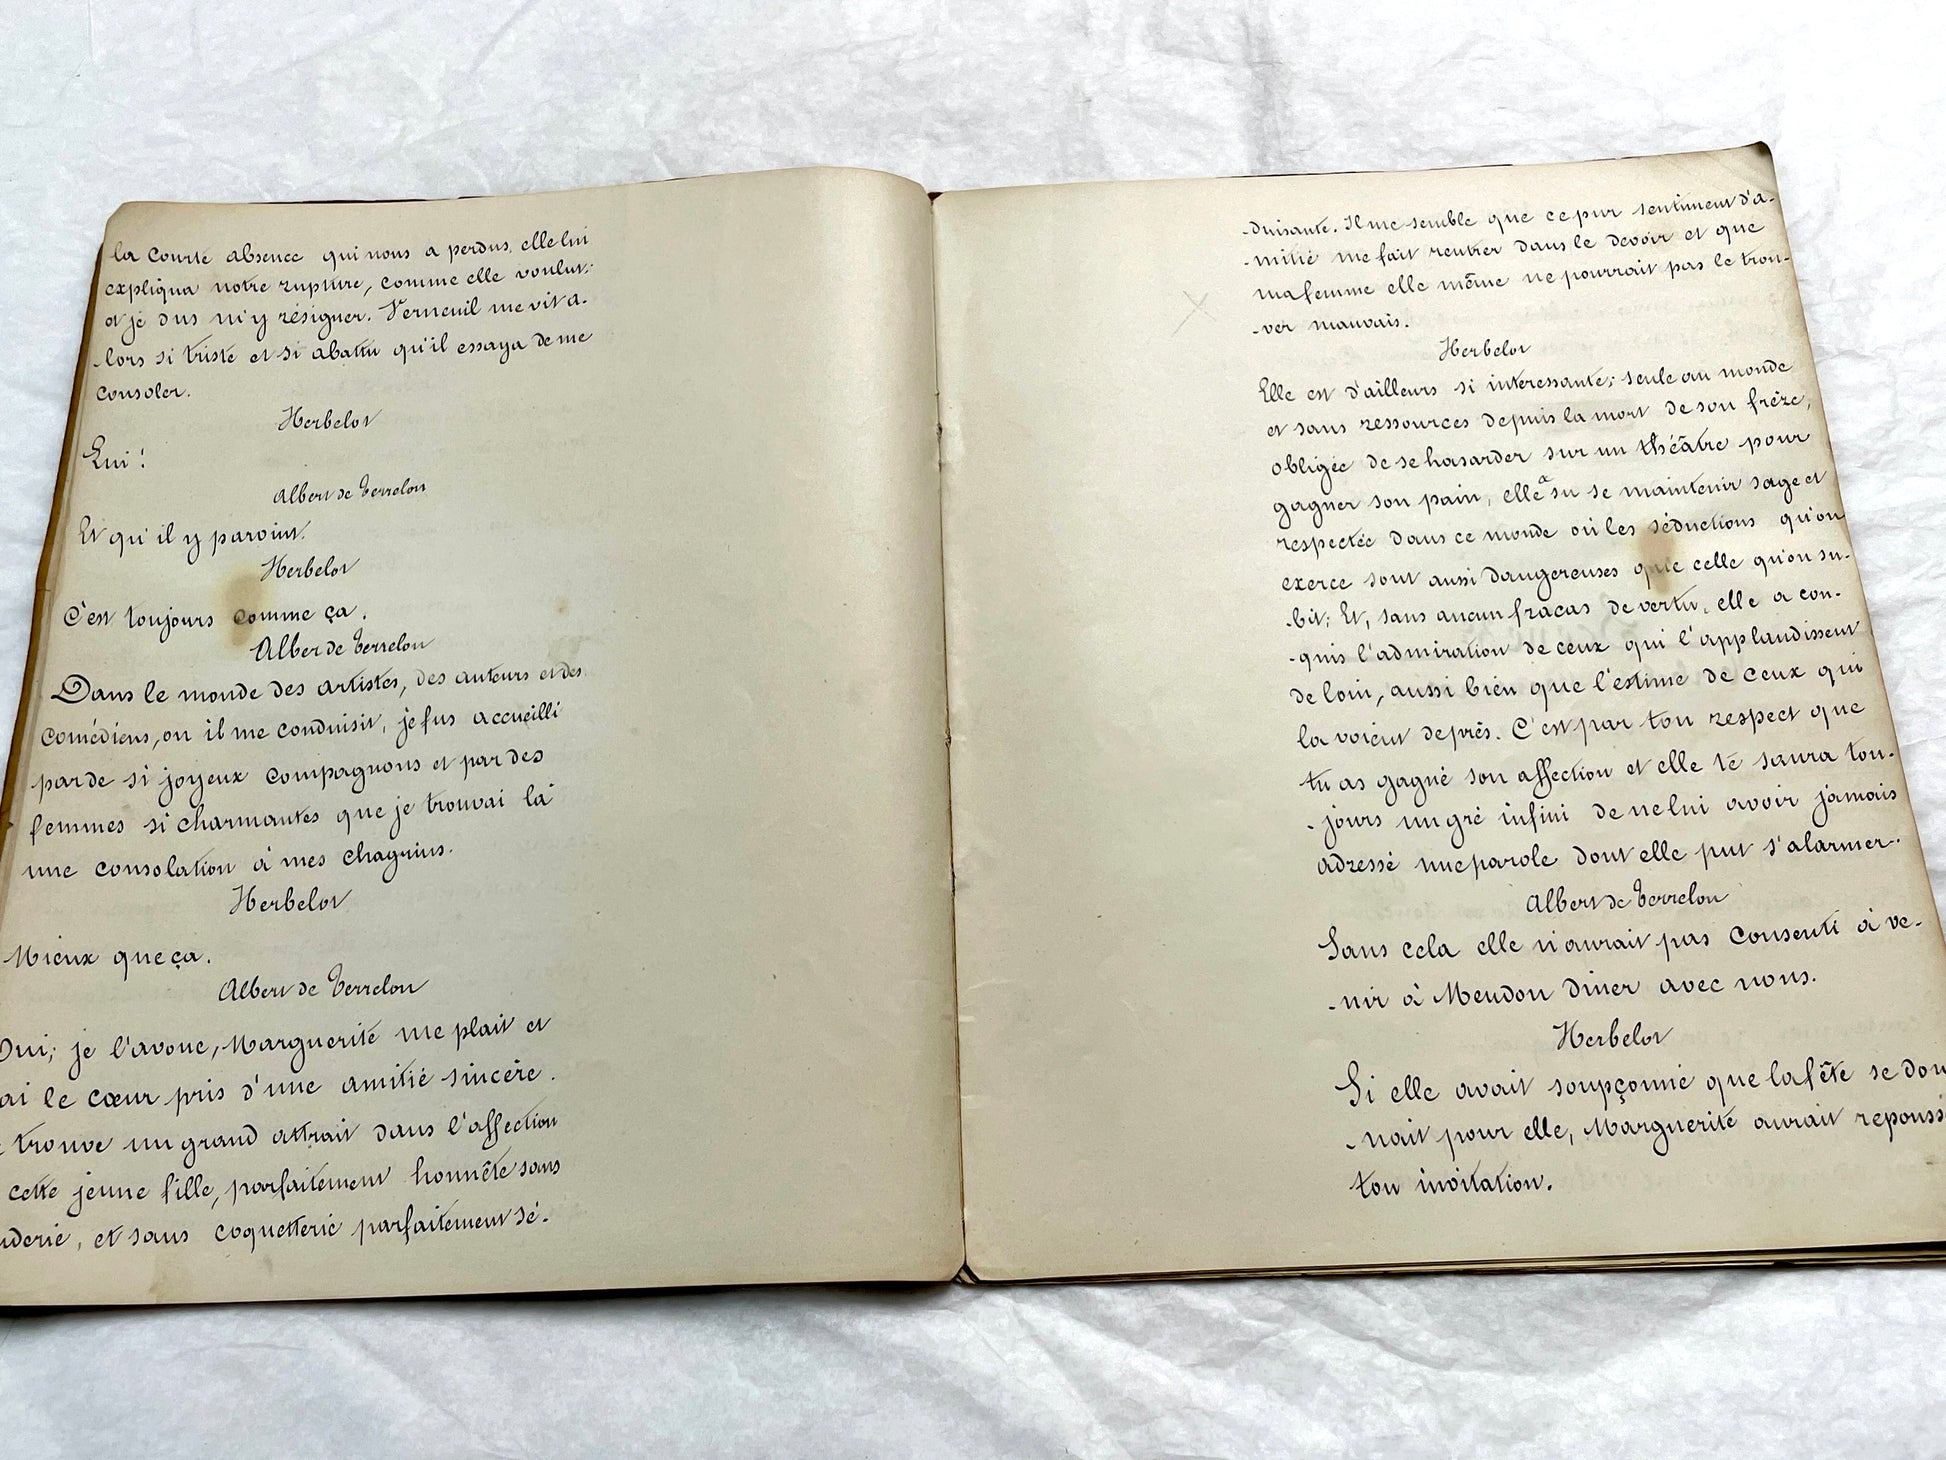 la courte absence qui nous a perdus, elle lui
expliqua notre rupture, comme elle voulut;
et je dus m'y résigner. Verneuil me vit a-
-lors si triste et si abattu qu'il essaya de me
consoler.
Herbelot
Lui!
Albert de Terrelou
Et qu'il y parvint.
Herbelot
C'est toujours comme ça.
Alber de Terrelou
Dans le monde des artistes, des auteurs et des
comédiens, ou il me conduisit, je fus accueilli
par de si joyeux compagnons et par des
femmes si charmantes que je trouvai là
une consolation à mes chagrins.
Herbelot
Mieux que ça.
Albert de Terrelou
Oui; je l'avoue, Marguerite me plait et
ai le cœur pris d'une amitié sincère.
trouve un grand attrait dans l'affection
cette jeune fille, parfaitement honnête sans
uderie, et sans coquetterie parfaitement sé-
-duisante. Il me semble que ce pur sentiment d'a-
-mitié me fait rentrer dans le devoir et que
ma femme elle même ne pourrait pas le trou-
-ver mauvais.
Herbelot
Elle est d'ailleurs si intéressante; seule au monde
et sans ressources depuis la mort de son frère,
obligée de se hasarder sur un théâtre pour
gagner son pain, elle a su se maintenir sage et
respectée dans ce monde où les séductions qu'on
exerce sont aussi dangereuses que celle qu'on su-
-bit; Et, sans aucun fracas de vertu, elle a con-
-quis l'admiration de ceux qui l'applaudissent
de loin, aussi bien que l'estime de ceux qui
la voient de près. C'est par ton respect que
tu as gagné son affection et elle te saura tou-
-jours un gré infini de ne lui avoir jamais
adressé une parole dont elle put s'alarmer.
Albert de Terrelou
Sans cela elle n'aurait pas consenti à ve-
-nir à Meudon diner avec nous.
Herbelot
Si elle avait soupçonné que la fête se don
-nait pour elle, Marguerite aurait repouss
ton invitation.